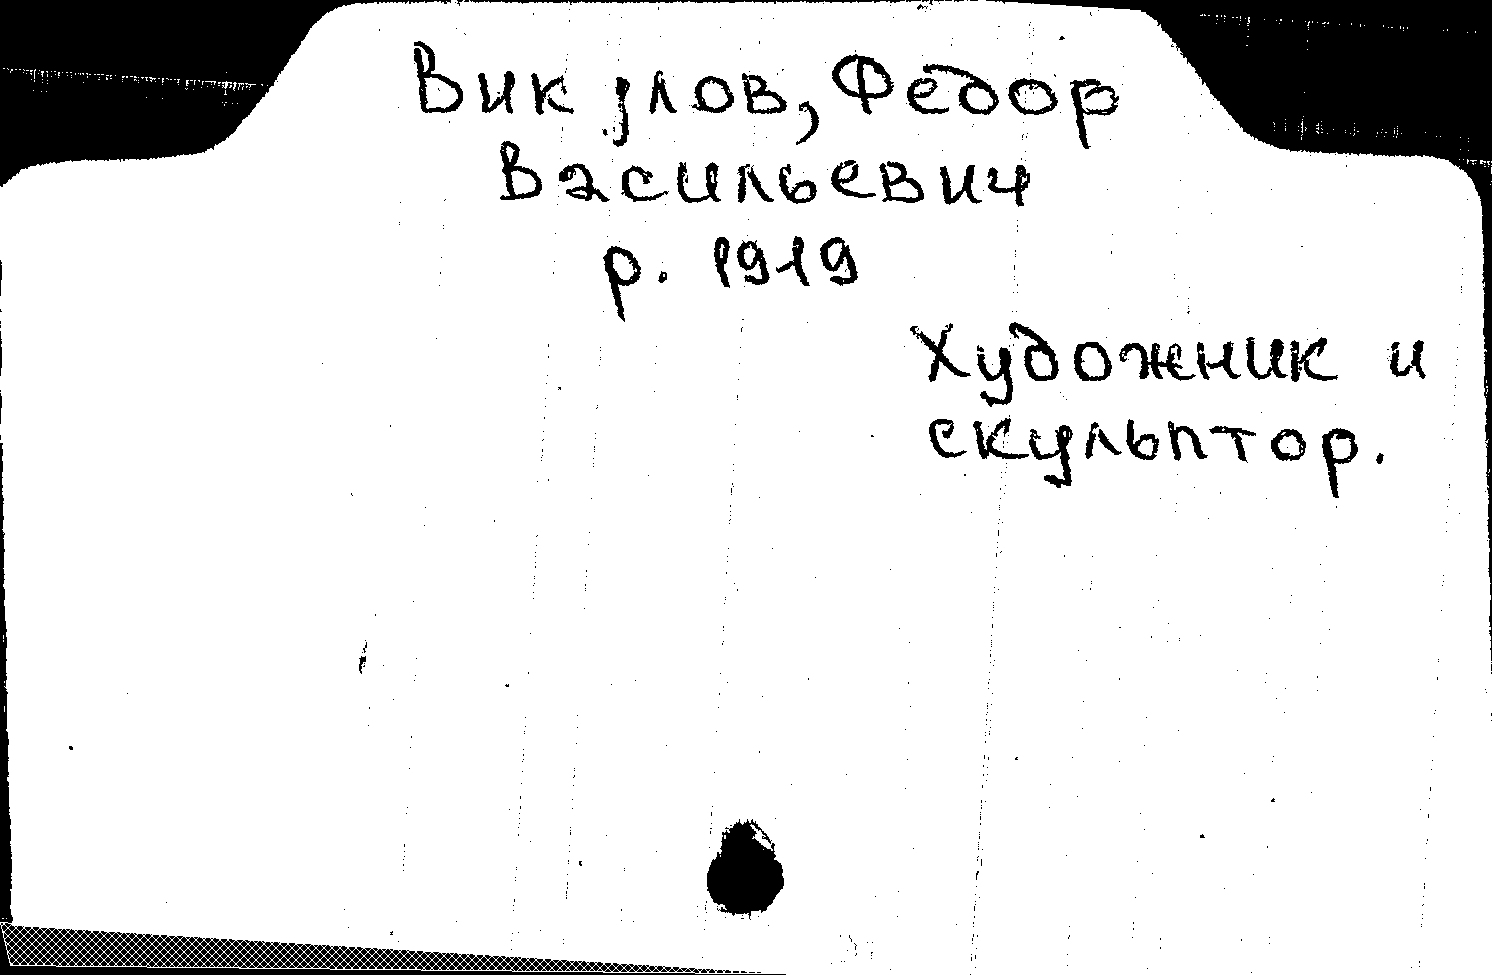 Викулов, Федор
Васильевич
р. 1919
Художник и
скульптор.